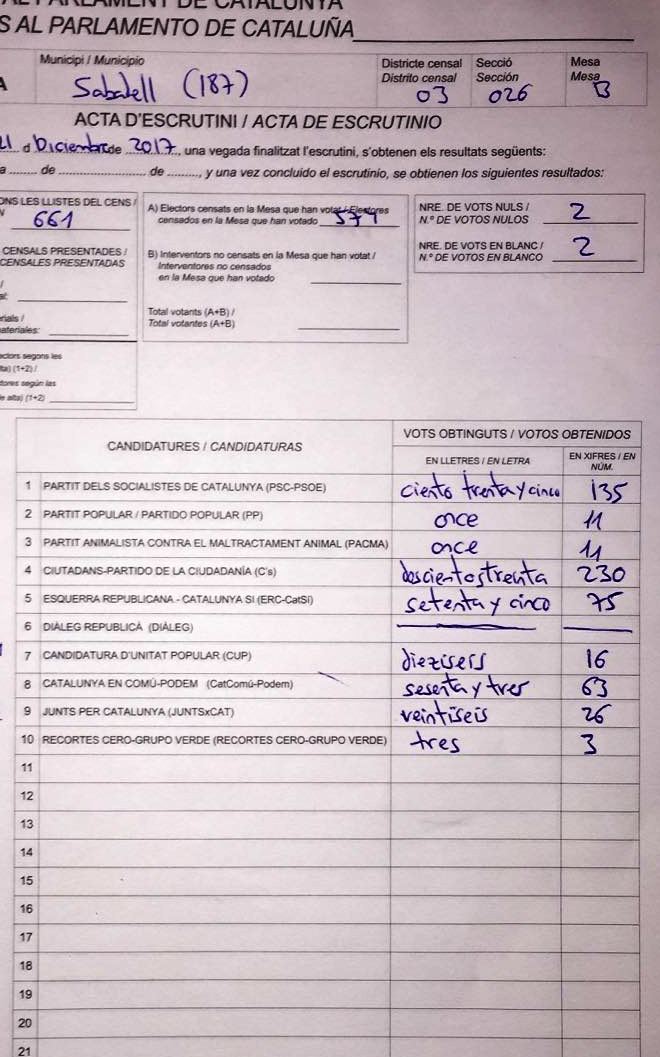 AL PARLAMENT DE CATALUNYA
S AL PARLAMENTO DE CATALUÑA
Municipi / Municipio
Sabadell (187)
Districte censal
Distrito censal
03
Secció
Sección
026
Mesa
Mesa
B
A
ACTA D'ESCRUTINI / ACTA DE ESCRUTINIO
21 d Diciembre de 2017, una vegada finalitzat l'escrutini, s'obtenen els resultats següents:
a ........ de ........................ de ........, y una vez concluido el escrutinio, se obtienen los siguientes resultados:
ONS LES LLISTES DEL CENS /
661
CENSALS PRESENTADES /
CENSALES PRESENTADAS
rials /
ateriales:
ectors segons les
lta) (1+2) /
tores según las
e alta) (1+2)
A) Electors censats en la Mesa que han votat / Electores
censados en la Mesa que han votado 574
B) Interventors no censats en la Mesa que han votat /
Interventores no censados
en la Mesa que han votado
Total votants (A+B) /
Total votantes (A+B)
NRE. DE VOTS NULS /
N.º DE VOTOS NULOS 2
NRE. DE VOTS EN BLANC /
N.º DE VOTOS EN BLANCO 2
CANDIDATURES / CANDIDATURAS
VOTS OBTINGUTS / VOTOS OBTENIDOS
EN LLETRES / EN LETRA
EN XIFRES / EN
NÚM.
1 PARTIT DELS SOCIALISTES DE CATALUNYA (PSC-PSOE) ciento treinta y cinco 135
2 PARTIT POPULAR / PARTIDO POPULAR (PP) once 11
3 PARTIT ANIMALISTA CONTRA EL MALTRACTAMENT ANIMAL (PACMA) once 11
4 CIUTADANS-PARTIDO DE LA CIUDADANÍA (C's) doscientos treinta 230
5 ESQUERRA REPUBLICANA - CATALUNYA SÍ (ERC-CatSí) setenta y cinco 75
6 DIÀLEG REPUBLICÀ (DIÀLEG)
7 CANDIDATURA D'UNITAT POPULAR (CUP) dieziseis 16
8 CATALUNYA EN COMÚ-PODEM (CatComú-Podem) sesenta y tres 63
9 JUNTS PER CATALUNYA (JUNTSxCAT) veintiseis 26
10 RECORTES CERO-GRUPO VERDE (RECORTES CERO-GRUPO VERDE) tres 3
11
12
13
14
15
16
17
18
19
20
21